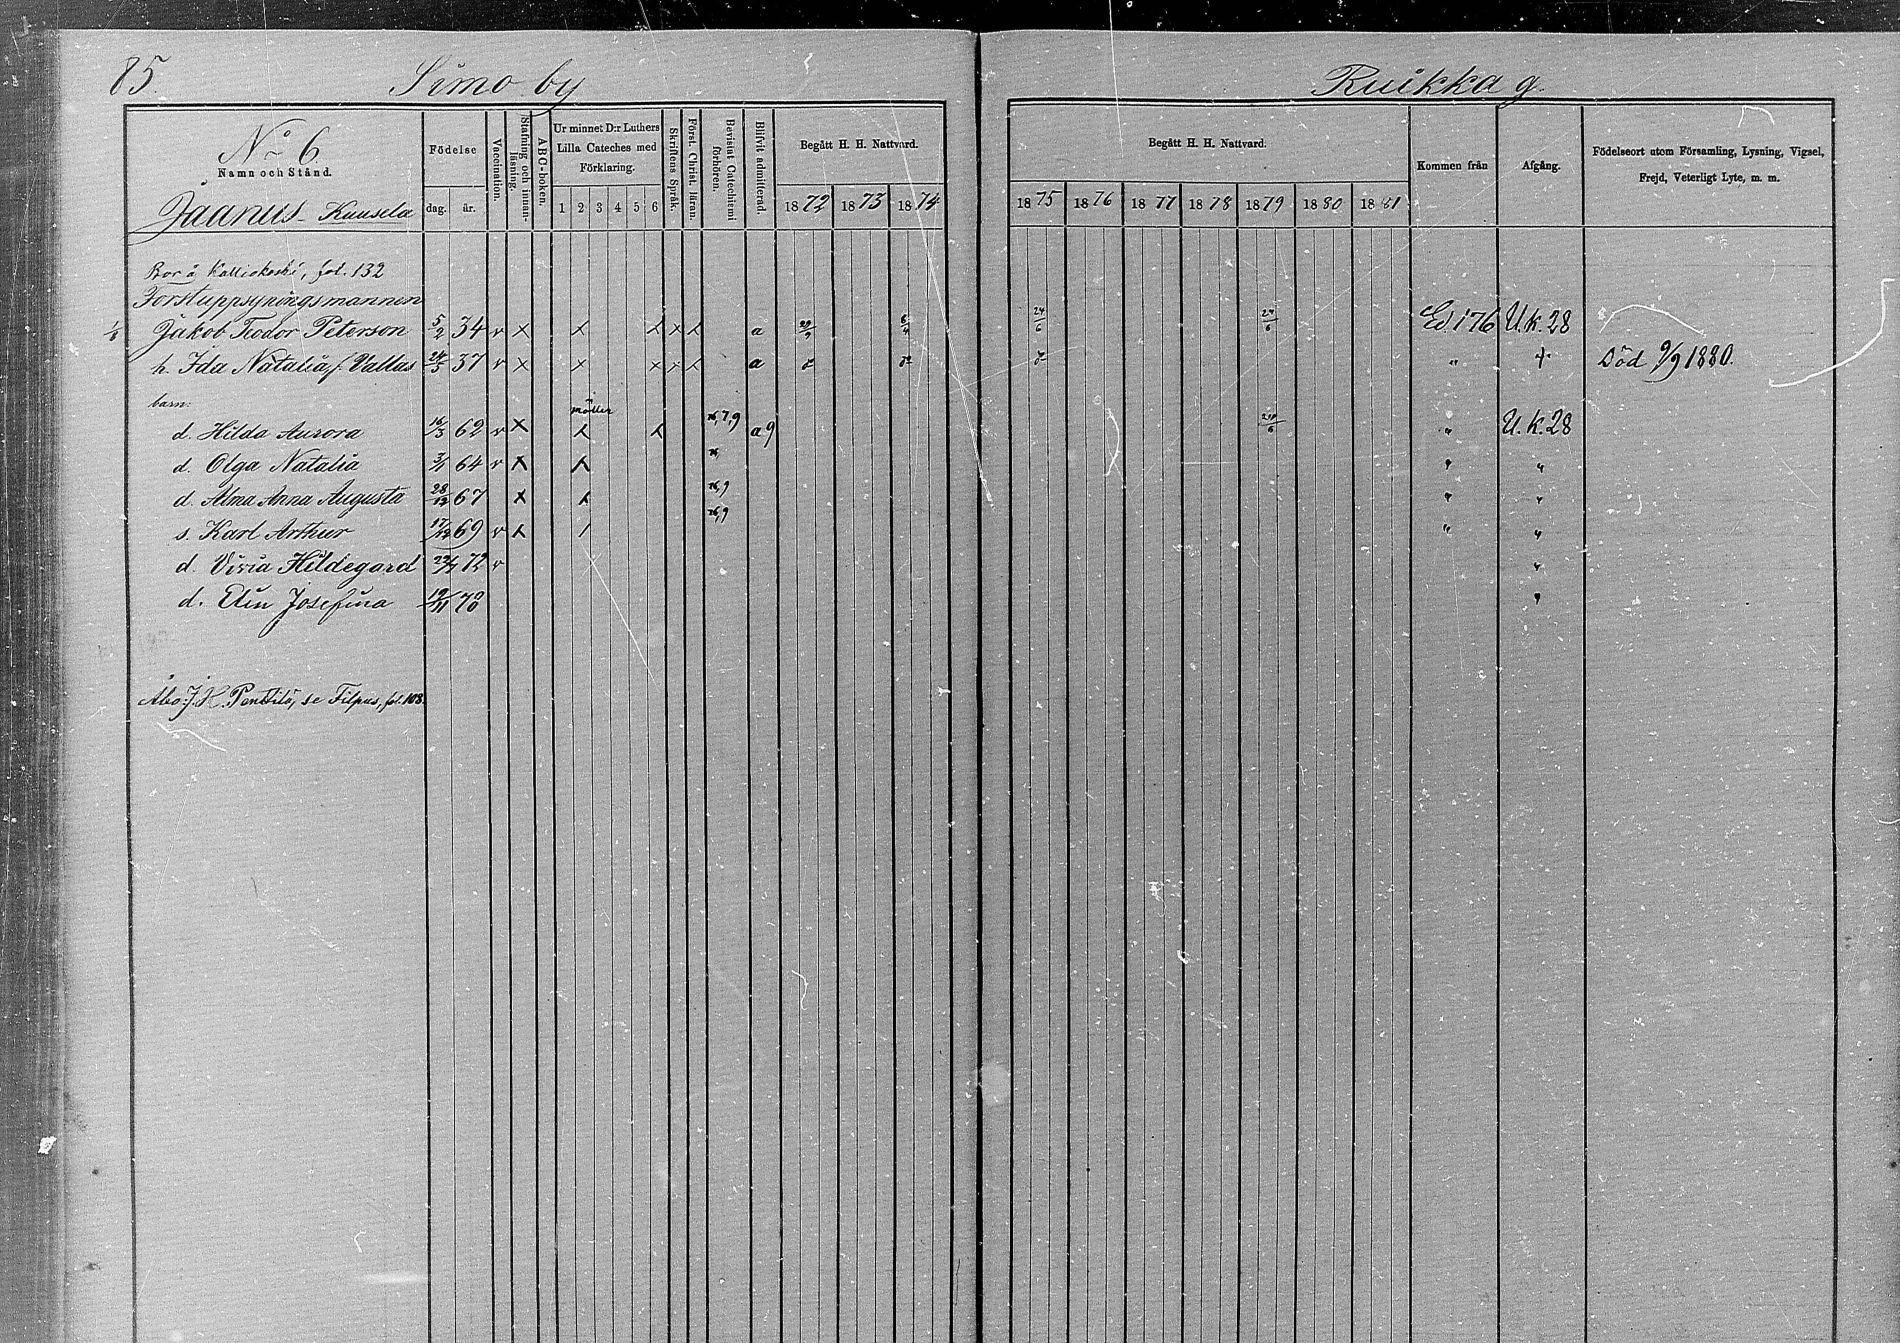 85.
Simo by
Ruikka g.
No 6
Namn och Stånd.
Jaanus - Kuusela
Födelse
dag. år.
Vaccination.
Stafning och innanläsning.
ABC-boken.
Ur minnet D:r Luthers Lilla Cateches med Förklaring.
1 2 3 4 5 6
Skriftens Språk.
Först. Christ. läran.
Bevistat Catechismi förhören.
Blifvit admitterad.
Begått H. H. Nattvard.
1872 1873 1874
Begått H. H. Nattvard.
1875 1876 1877 1878 1879 1880 1881
Kommen från
Afgång.
Födelseort utom Församling, Lysning, Vigsel, Frejd, Veterligt Lyte, m. m.
Bor å Kalliokoski, fol. 132
Forstuppsyningsmannen
1/6 Jakob Teodor Peterson 5/2 34 v x x x x x a 6/4 24/6 24/6 Ed 176 U.k. 28
h. Ida Natalia f. Vallus 24/5 37 v x x x x x a " + Död 9/9 1880.
barn:
d. Hilda Aurora 16/3 62 v x x x 76,7,9 a 9 24/6 " U.k. 28
d. Olga Natalia 3/1 64 v x x 76, " "
d. Alma Anna Augusta 28/12 67 x x 76,9 " "
s. Karl Arthur 17/12 69 v x / 76,9 " "
d. Viria Hildegard 72 v "
d. Elin Josefina 19/11 78 "
Åbo: J. K. Penttilä, se Filpus, fol. 108.